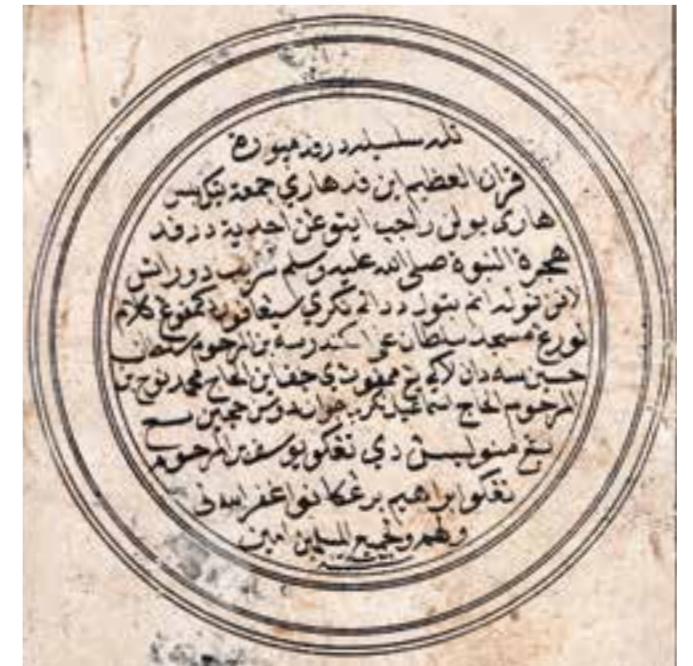 تله سلسيله درفد ميورة
قران العظيم اين فد هاري جمعة تيك بلس
هاري بولن راجب ايتوغن احدية درفد
هجرة النبوة صلى الله عليه وسلم سريب دوراتس
لافن فوله انم بتول ددالم نكري سيغافورا كمفوغ كلام
لورغ مسجد سلطان علي اسكندر شه بن المرحوم سلطان
حسين شه دان لاكي يغ ممفوثاي جف اين الحاج محمد نوح بن
المرحوم الحاج اسماعيل نكري جوان دوسن
يغ منوليسن دي تغكو يوسف بن المرحوم
تغكو ابراهيم غفر الله لي
ولهم ولجميع المسلمين امين